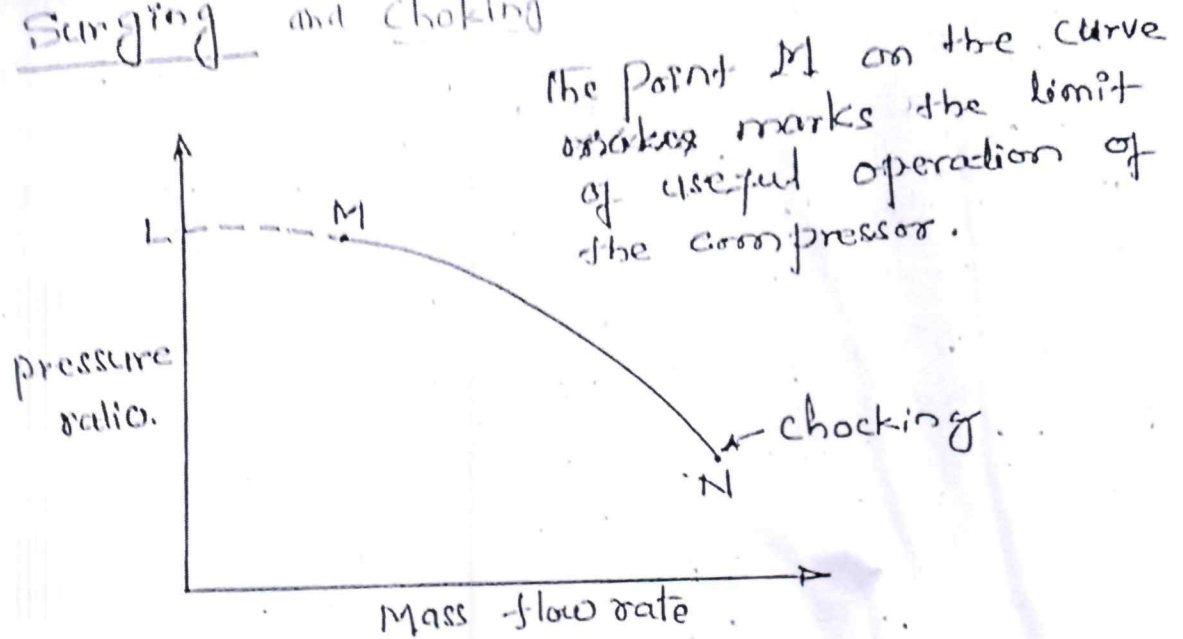 Surging and Choking
The Point M on the curve
marks the limit
of useful operation of
the compressor.
M
L
pressure
ratio.
chocking.
N
Mass flow rate